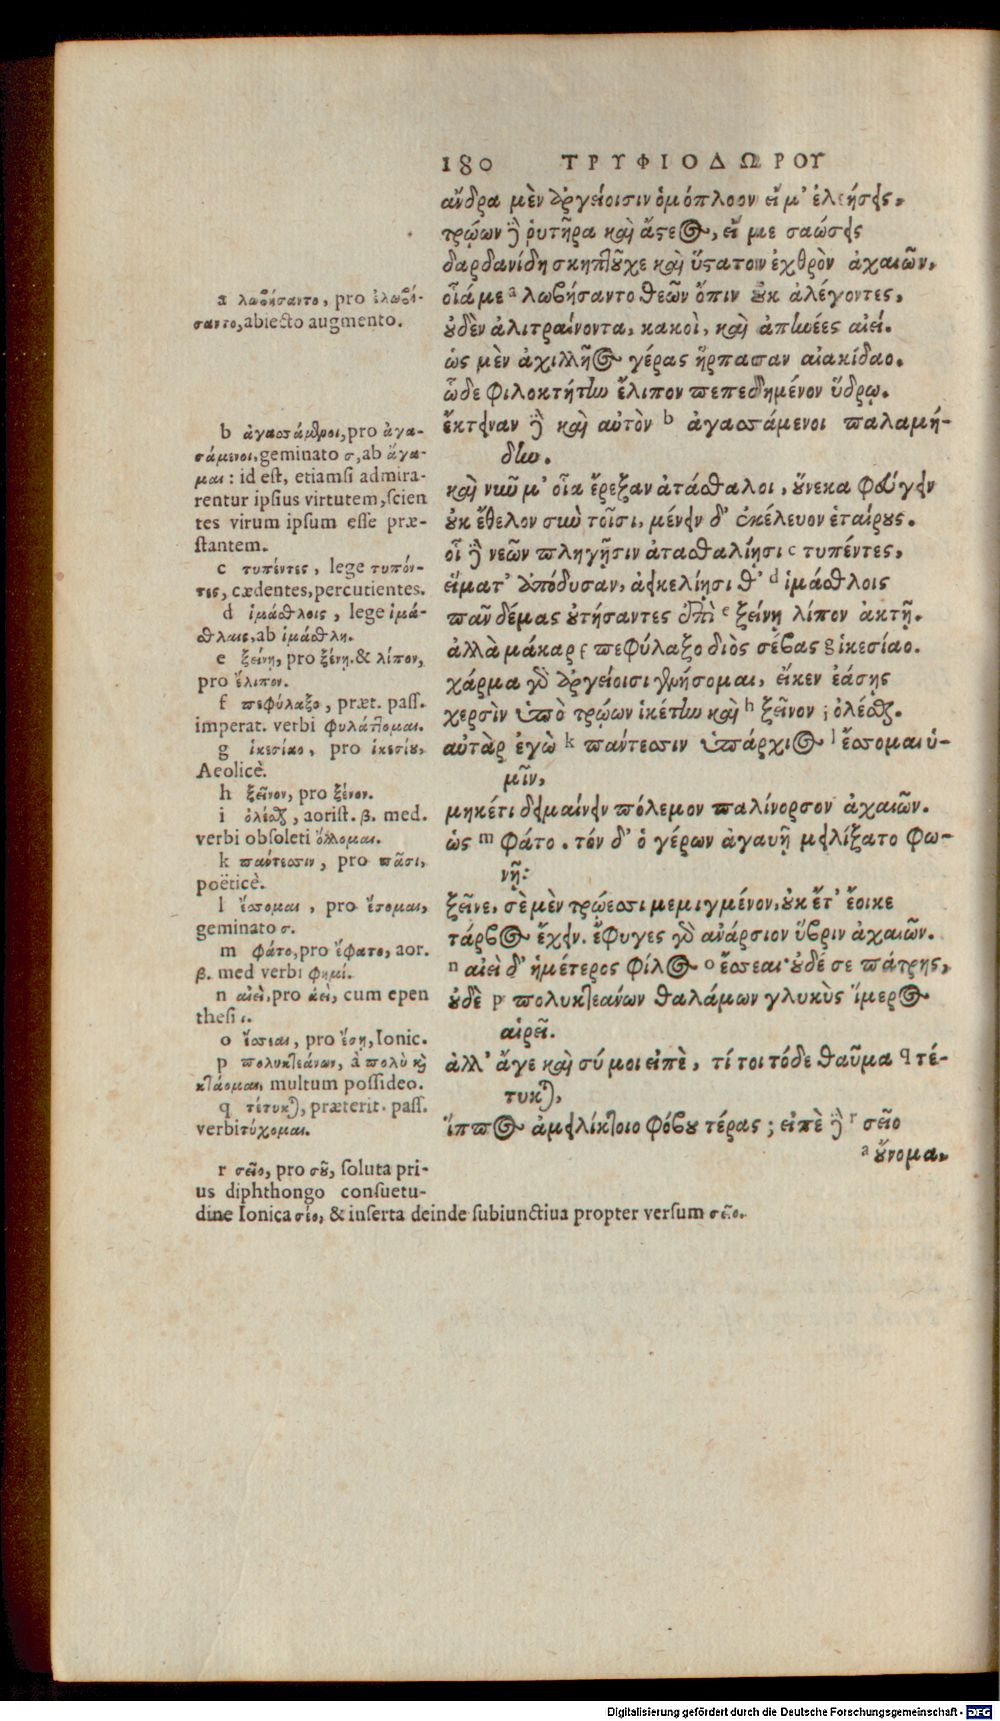 180 ΤΡΥΦΙΟΔΩΡΟΥ
ἄνδρα μὲν ἀργείοισιν ὁμόπλοον εἴ μ' ἐλεήσεις,
τρώων δὲ ῥυτῆρα καὶ ἄστεος, εἴ με σαώσεις
δαρδανίδη σκηπτοῦχε καὶ ὕστατον ἐχθρὸν ἀχαιῶν,
οἷά με a λωβήσαντο θεῶν ὄπιν οὐκ ἀλέγοντες,
οὐδὲν ἀλιτραίνοντα, κακοὶ, καὶ ἀπηνέες αἰεί.
ὡς μὲν ἀχιλλῆος γέρας ἥρπασαν αἰακίδαο.
ὧδε φιλοκτήτην ἔλιπον πεπεδημένον ὕδρῳ.
ἔκτειναν δὲ καὶ αὐτὸν b ἀγασσάμενοι παλαμή-
δην.
καὶ νῦν μ' οἷα ἔρεξαν ἀτάσθαλοι, οὕνεκα φεύγειν
οὐκ ἔθελον σὺν τοῖσι, μένειν δ' ἐκέλευον ἑταίρους.
οἱ δὲ νεῶν πληγῇσιν ἀτασθαλίῃσι c τυπέντες,
εἵματ' ἀπόδυσαν, ἀεικελίῃσι θ' d ἱμάσθλοις
παῦ δέμας οὐτήσαντες ἐπὶ e ξείνῃ λίπον ἀκτῇ.
ἀλλὰ μάκαρ f πεφύλαξο διὸς σέβας g ἱκεσίαο.
χάρμα γὰρ ἀργείοισι γενήσομαι, εἴκεν ἐάσῃς
χερσὶν ὑπὸ τρώων ἱκέτην καὶ h ξεῖνον i ὀλέσθαι.
αὐτὰρ ἐγὼ k πάντεσσιν ὑπάρκιος l ἔσσομαι ὑ-
μῖν,
μηκέτι δειμαίνειν πόλεμον παλίνορσον ἀχαιῶν.
ὡς m φάτο. τόν δ' ὁ γέρων ἀγαυῇ μειλίξατο φω-
νῇ:
ξεῖνε, σὲ μὲν τρώεσσι μεμιγμένον, οὐκ ἔτ' ἔοικε
τάρβος ἔχειν. ἔφυγες γὰρ ἀνάρσιον ὕβριν ἀχαιῶν.
n αἰεὶ δ' ἡμέτερος φίλος o ἔσσεαι· οὐδέ σε πάτρης,
οὐδὲ p πολυκτεάνων θαλάμων γλυκὺς ἵμερος
αἱρεῖ.
ἀλλ' ἄγε καὶ σύ μοι εἰπὲ, τί τοι τόδε θαῦμα q τέ-
τυκται,
ἵππος ἀμειλίκτοιο φόβου τέρας; εἰπὲ δὲ r σεῖο
a οὔνομα,
a λωβήσαντο, pro ἐλωβή-
σαντο, abiecto augmento.
b ἀγασσάμενοι, pro ἀγα-
σάμενοι, geminato σ, ab ἄγα-
μαι: id est, etiamsi admira-
rentur ipsius virtutem, scien
tes virum ipsum esse præ-
stantem.
c τυπέντες, lege τυπόν-
τες, cædentes, percutientes.
d ἱμάσθλοις, lege ἱμά-
σθλαις, ab ἱμάσθλη.
e ξείνῃ, pro ξένῃ. & λίπον,
pro ἔλιπον.
f πεφύλαξο, præt. pass.
imperat. verbi φυλάττομαι.
g ἱκεσίαο, pro ἱκεσίου,
Aeolicè.
h ξεῖνον, pro ξένον.
i ὀλέσθαι, aorist. β. med.
verbi obsoleti ὄλλομαι.
k πάντεσσιν, pro πᾶσι,
poëticè.
l ἔσσομαι, pro ἔσομαι,
geminato σ.
m φάτο, pro ἔφατο, aor.
β. med verbi φημί.
n αἰεὶ, pro ἀεὶ, cum epen
thesi ι.
o ἔσσεαι, pro ἔσῃ, Ionic.
p πολυκτεάνων, à πολὺ καὶ
κτάομαι, multum possideo.
q τέτυκται, præterit. pass.
verbi τύχομαι.
r σεῖο, pro σοῦ, soluta pri-
us diphthongo consuetu-
dine Ionica σέο, & inserta deinde subiunctiua propter versum σεῖο.
Digitalisierung gefördert durch die Deutsche Forschungsgemeinschaft - DFG